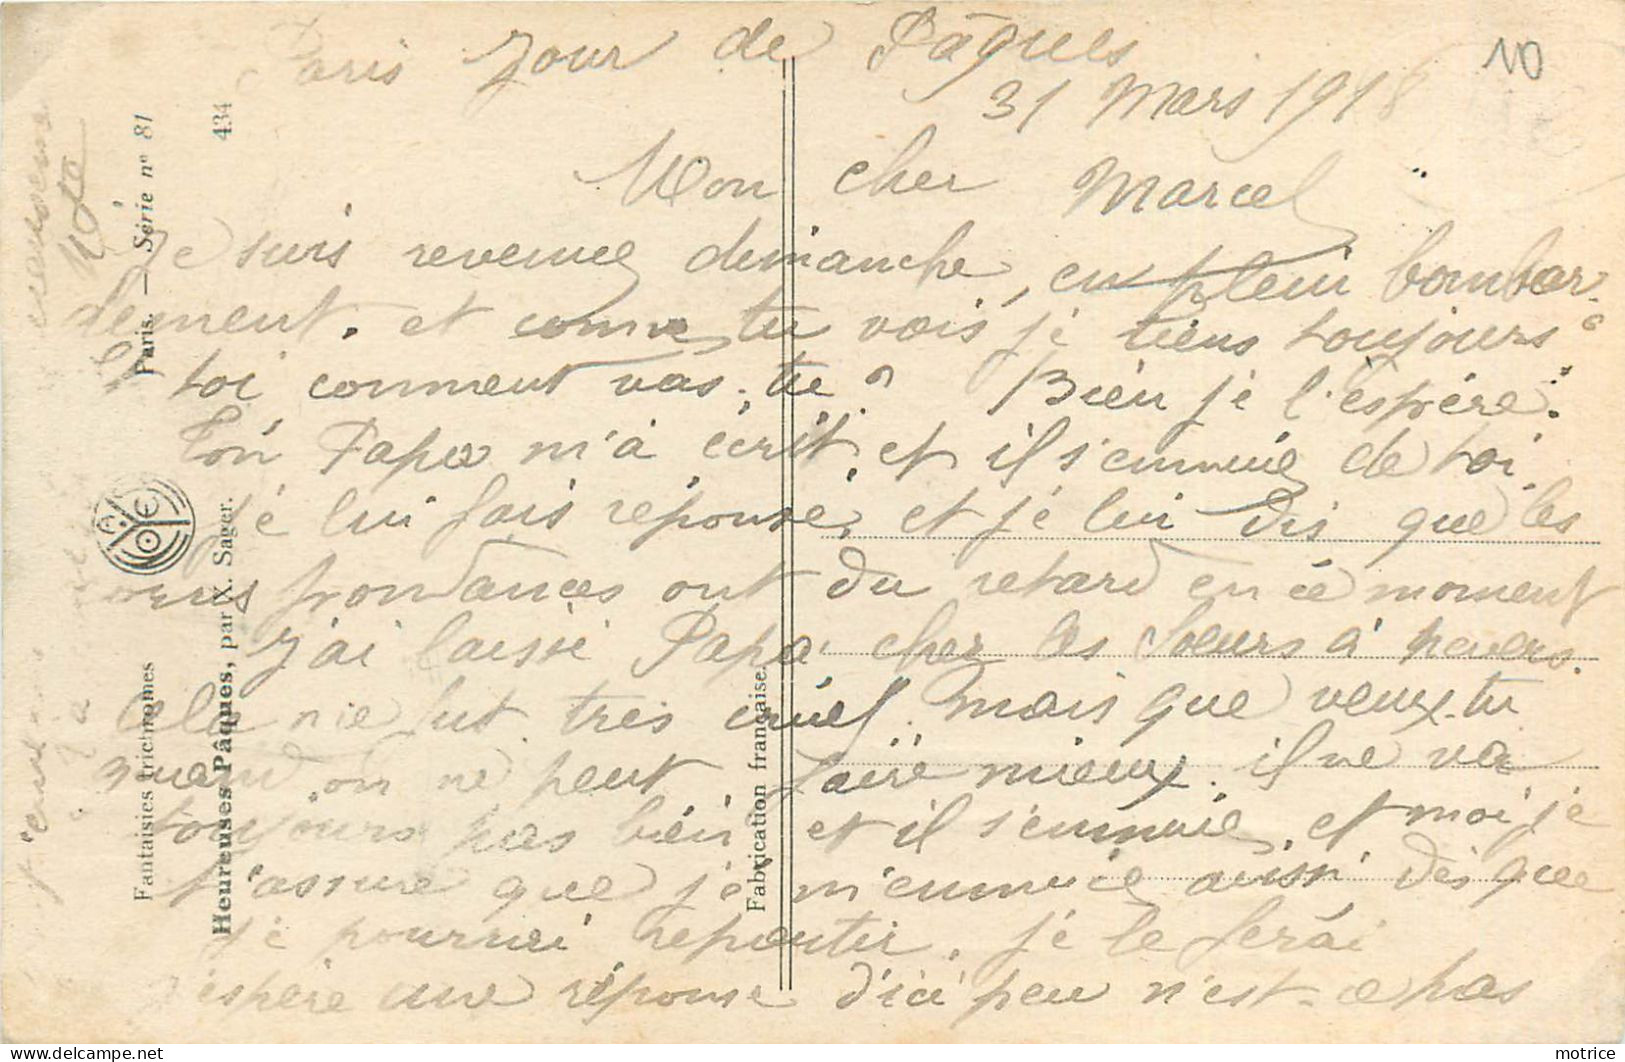 Paris Jour de Pâques
31 Mars 1918
10
Mon cher Marcel
Je suis revenue dimanche, en plein bombar-
dement. et comme tu vois je tiens toujours
toi comment vas-tu ? Bien je l'espère.
Ton Papa m'à écrit, et il s'ennuie de toi.
je lui fais réponse, et je lui dis que les
corrus frondances ont du retard en ce moment
J'ai laissé Papa chez les Soeurs à Nevers.
Cela me fut très cruel. mais que veux-tu
quand on ne peut faire mieux. il ne va
toujours pas bien et il s'ennuie, et moi je
t'assure que je m'ennuie aussi dès que
je pourrai repartir, je le ferai
j'espère une réponse d'ici peu n'est-ce pas
t'embrasse
Fantaisies trichromes Paris. — Série nº 81
Heureuses Pâques, par X. Sager. 434
Fabrication française
motrice